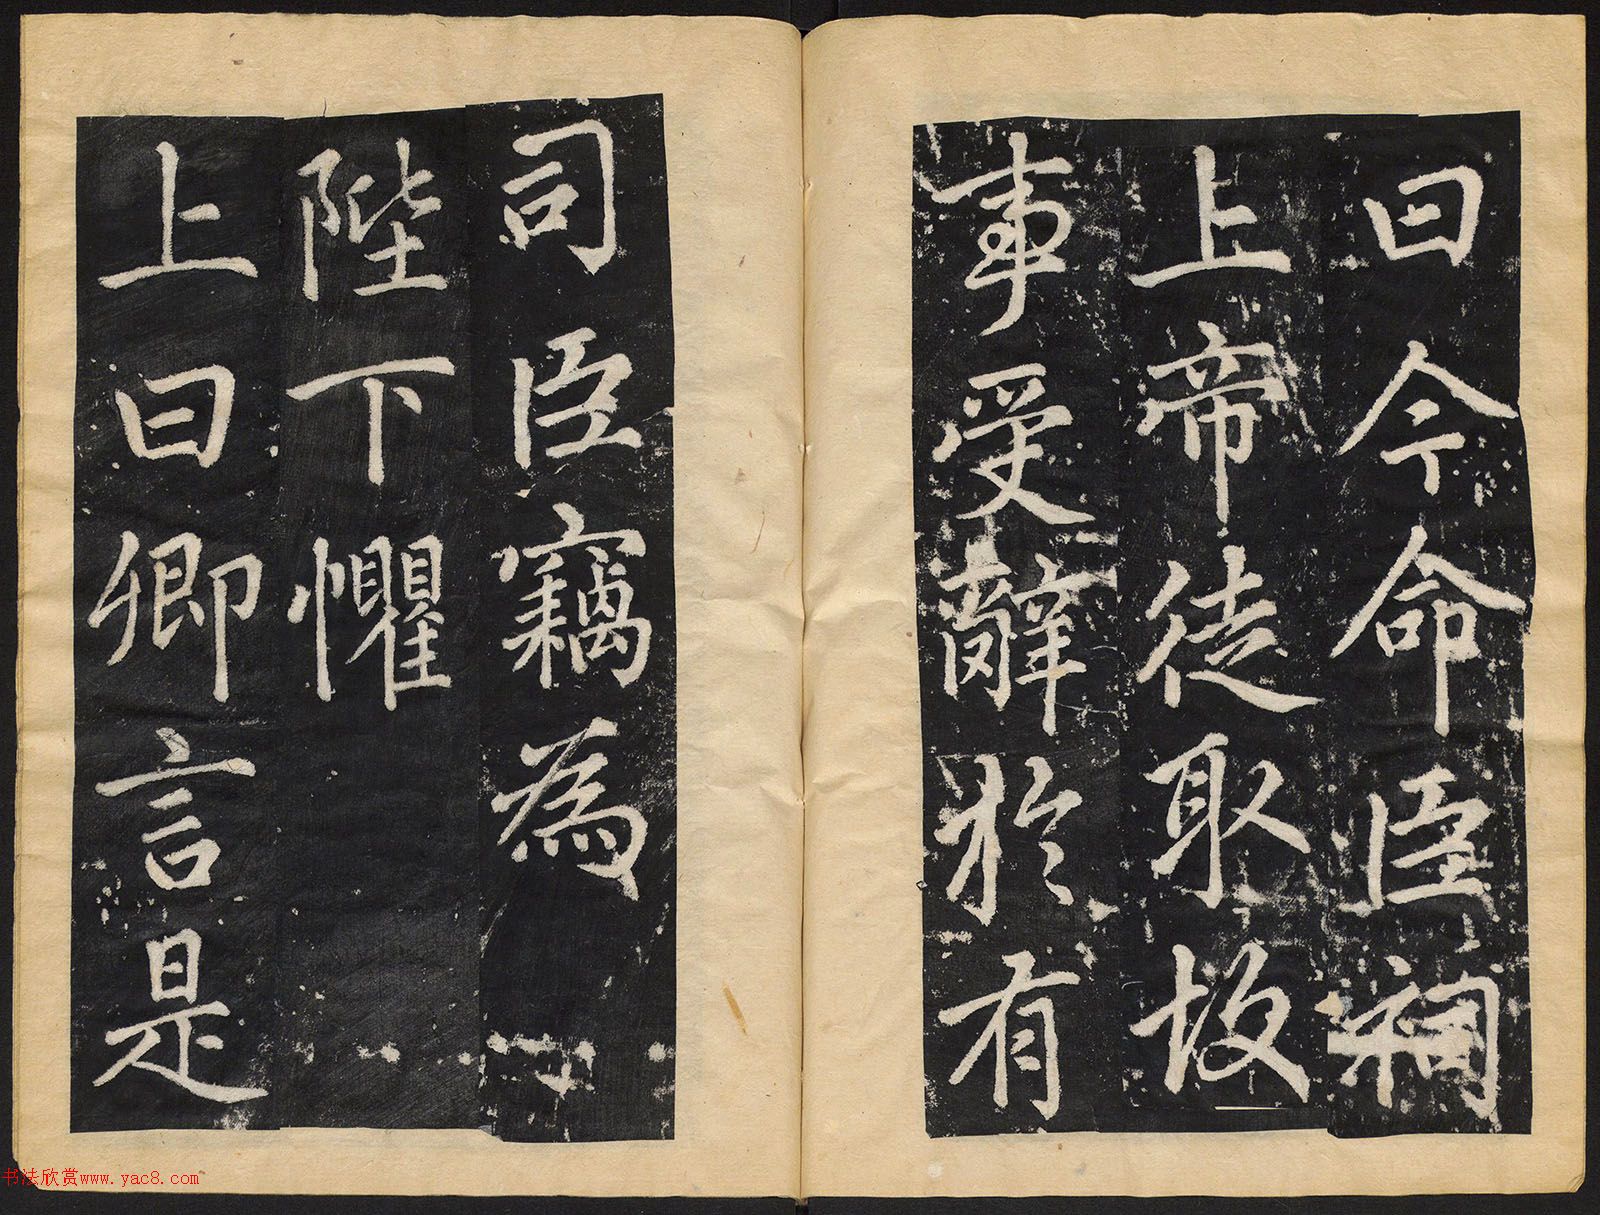 曰今命臣祠
上帝徒取坂
事受辭於有
司臣竊為
陛下懼
上曰卿言是
书法欣赏www.yac8.com